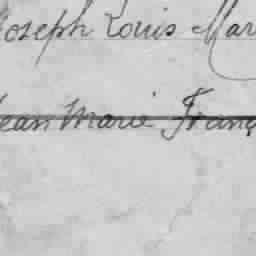 Joseph Louis Mar
Jean Marie Franç